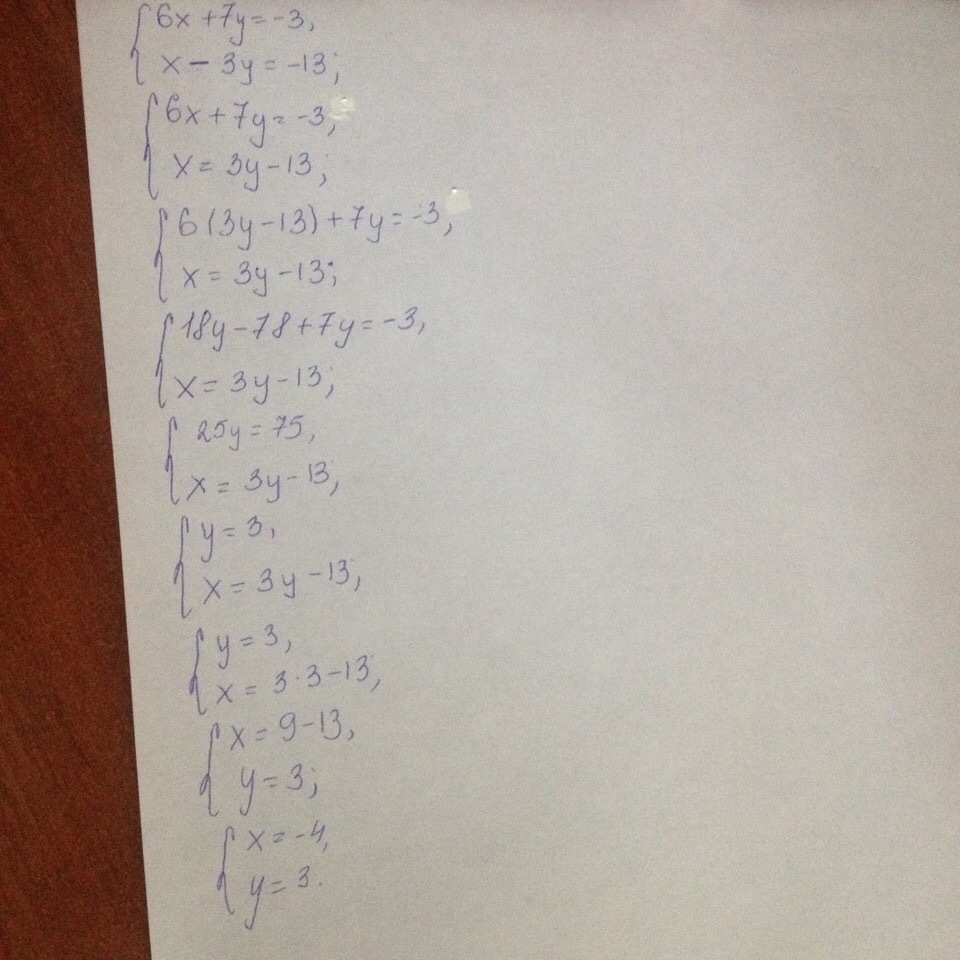 6x+7y=-3,
x-3y=-13;
6x+7y=-3,
x=3y-13;
6(3y-13)+7y=-3,
x=3y-13;
18y-78+7y=-3,
x=3y-13;
25y=75,
x=3y-13;
y=3,
x=3y-13;
y=3,
x=3·3-13;
x=9-13,
y=3;
x=-4,
y=3.